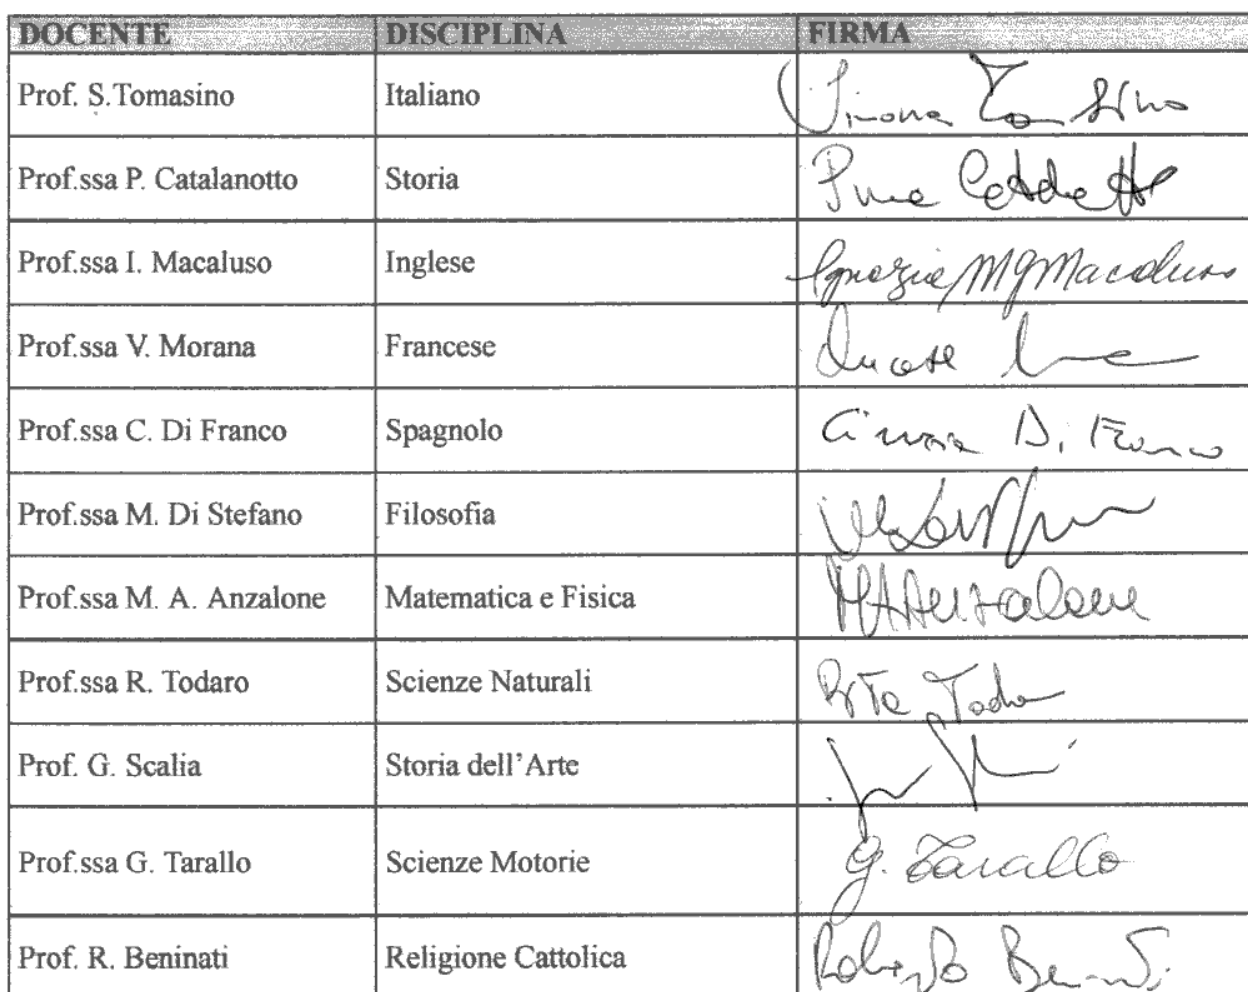 DOCENTE DISCIPLINA FIRMA
Prof. S.Tomasino Italiano Simona Tomasino
Prof.ssa P. Catalanotto Storia
Prof.ssa I. Macaluso Inglese Ignazia M G Macaluso
Prof.ssa V. Morana Francese
Prof.ssa C. Di Franco Spagnolo Cinzia Di Franco
Prof.ssa M. Di Stefano Filosofia
Prof.ssa M. A. Anzalone Matematica e Fisica M A Anzalone
Prof.ssa R. Todaro Scienze Naturali Rita Todaro
Prof. G. Scalia Storia dell'Arte
Prof.ssa G. Tarallo Scienze Motorie G. Tarallo
Prof. R. Beninati Religione Cattolica Roberto Beninati